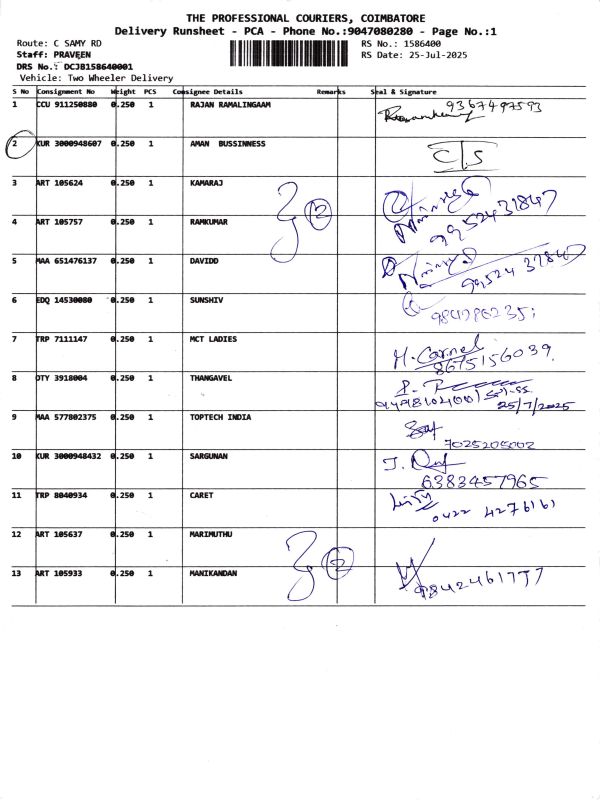 THE PROFESSIONAL COURIERS, COIMBATORE
Delivery Runsheet - PCA - Phone No.:9047080280 - Page No.:1
Route: C SAMY RD
RS No.: 1586400
Staff: PRAVEEN
RS Date: 25-Jul-2025
DRS No.: DCJB158640001
Vehicle: Two Wheeler Delivery
S No Consignment No Weight PCS Consignee Details Remarks Seal & Signature
1 CCU 911250880 0.250 1 RAJAN RAMALINGAAM 9367497593
2 KUR 3000948607 0.250 1 AMAN BUSSINNESS C/S
3 ART 105624 0.250 1 KAMARAJ
4 ART 105757 0.250 1 RAMKUMAR 2 9952431847
5 MAA 651476137 0.250 1 DAVIDD
6 EDQ 14530080 0.250 1 SUNSHIV
7 TRP 7111147 0.250 1 MCT LADIES M. Carmel
8675156039
8 OTY 3918004 0.250 1 THANGAVEL
25/7/2025
9 MAA 577802375 0.250 1 TOPTECH INDIA
7025205002
10 KUR 3000948432 0.250 1 SARGUNAN
6383457965
11 TRP 8040934 0.250 1 CARET
0422 4276161
12 ART 105637 0.250 1 MARIMUTHU
2
13 ART 105933 0.250 1 MANIKANDAN 9842461777